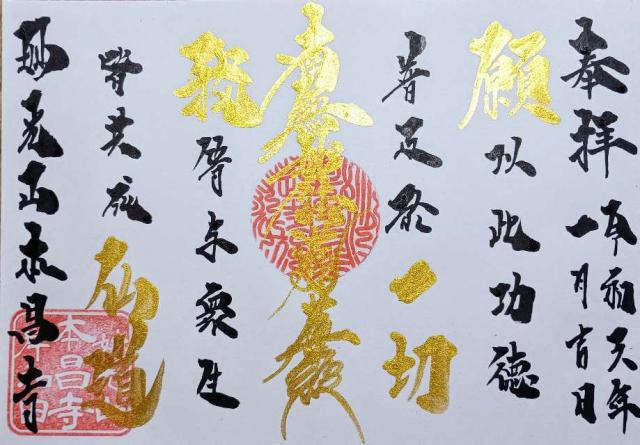 奉拝
令和六年
一月吉日
願以此功徳
普及於一切
我等与衆生
皆共成仏道
妙光山本昌寺
本昌寺